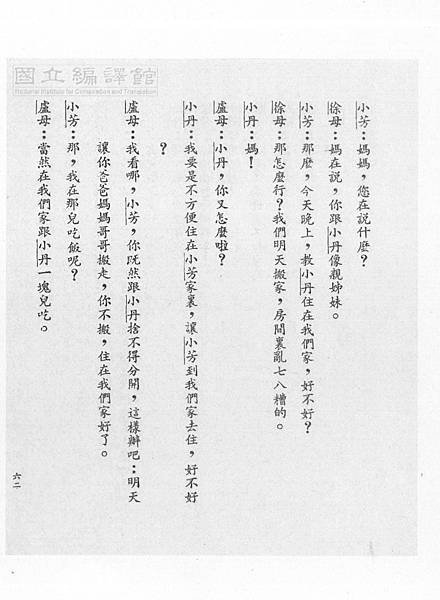 國立編譯館
National Institute for Compilation and Translation
小芳：媽媽，您在説什麼？
徐母：媽在説，你跟小丹像親姊妹。
小芳：那麼，今天晚上，教小丹住在我們家，好不好？
徐母：那怎麼行？我們明天搬家，房間裏亂七八糟的。
小丹：媽！
盧母：小丹，你又怎麼啦？
小丹：我要是不方便住在小芳家裏，讓小芳到我們家去住，好不好
？
盧母：我看哪，小芳，你既然跟小丹捨不得分開，這樣辦吧：明天
讓你爸爸媽媽哥哥搬走，你不搬，住在我們家好了。
小芳：那，我在那兒吃飯呢？
盧母：當然在我們家跟小丹一塊兒吃。
六二